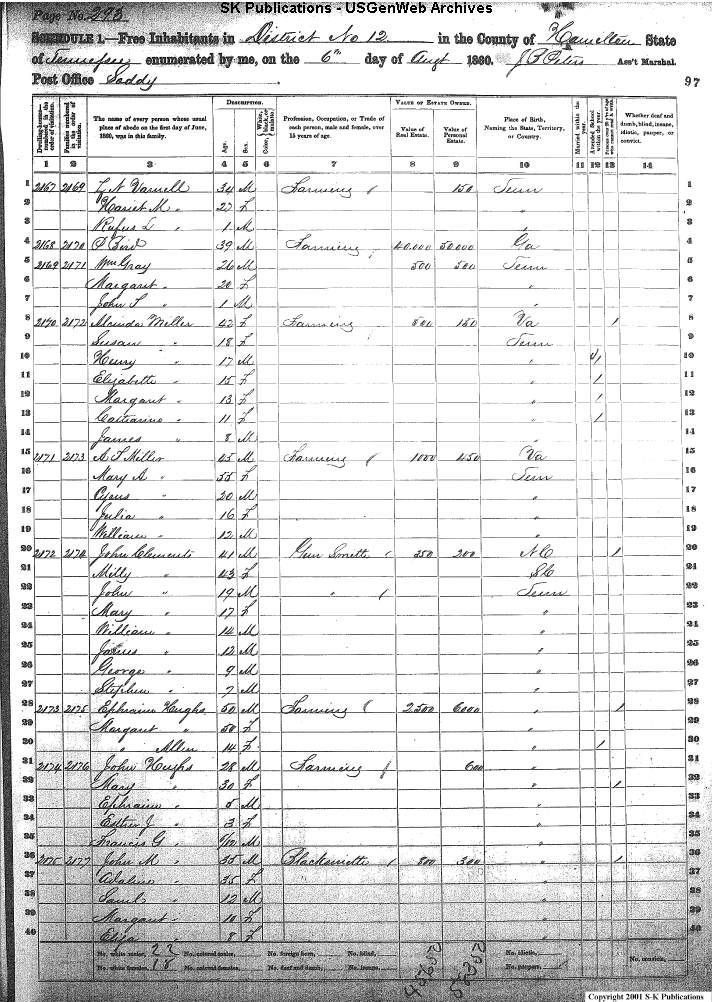 SK Publications - USGenWeb Archives
Page No. 293
SCHEDULE 1.—Free Inhabitants in District No 12 in the County of Hamilton State
of Tennessee enumerated by me, on the 6th day of Augt 1860. Ass't Marshal.
Post Office Soddy 97
DESCRIPTION. VALUE OF ESTATE OWNED.
Dwelling-houses—numbered in the order of visitation.
Families numbered in the order of visitation.
The name of every person whose usual place of abode on the first day of June, 1860, was in this family.
Age. Sex. White, black, or mulatto. Color,
Profession, Occupation, or Trade of each person, male and female, over 15 years of age.
Value of Real Estate. Value of Personal Estate.
Place of Birth, Naming the State, Territory, or Country.
Married within the year. Attended School within the year.
Whether deaf and dumb, blind, insane, idiotic, pauper, or convict.
1 2 3 4 5 6 7 8 9 10 11 12 13 14
1 2167 2169 L N Varnell 34 M Farming 150 Tenn 1
2 Hariet M " 27 F " 2
3 Rufus L " 1 M " 3
4 2168 2170 39 M Farming 40,000 50,000 Ga 4
5 2169 2171 Wm Gray 26 M 500 500 Tenn 5
6 Margaret " 20 F " 6
7 John " 1 M " 7
8 2170 2172 Miller 42 F Farming 800 150 Va 1 8
9 Susan " 18 F Tenn 9
10 Henry " 17 M " 1 10
11 Elizabeth " 15 F " 1 11
12 Margaret " 13 F " 1 12
13 Catharine " 11 F " 1 13
14 James " 8 M " 14
15 2171 2173 Miller 45 M Farming 1000 450 Va 15
16 Mary A " 55 F Tenn 16
17 Cyrus " 20 M " 17
18 Julia " 16 F " 18
19 William " 12 M " 19
20 2172 2174 John Clements 41 M Gun Smith 350 200 N C 1 20
21 Milly " 43 F S C 21
22 John " 19 M " Tenn 22
23 Mary " 17 F " 23
24 William " 14 M " 24
25 James " 12 M " 25
26 George " 9 M " 26
27 Stephen " 7 M " 27
28 2173 2175 Ephraim Hughs 50 M Farming 2500 6000 " 1 28
29 Margaret " 50 F " 29
30 " Allen 14 F " 1 30
31 2174 2176 John Hughs 28 M Farming 600 " 31
32 Mary " 30 F " 1 32
33 Ephraim " 5 M " 33
34 Esther J " 3 F " 34
35 Francis G " M " 35
36 2175 2177 John M " 35 M Blacksmith 800 300 " 1 36
37 Adaline " 35 F " 37
38 Saml " 12 M " 38
39 Margaret " 10 F " 39
40 Eliza " 8 F " 40
No. white males, 22 No. colored males, No. foreign born, No. blind, No. idiotic, No. convicts,
No. white females, 18 No. colored females, No. deaf and dumb, No. insane, No. paupers,
Copyright 2001 S-K Publications